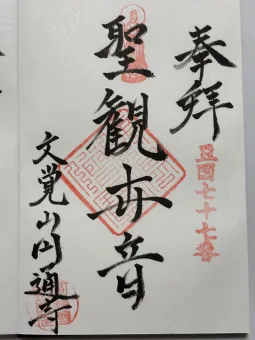 奉拝
七十七番
聖観世音
文覚山円通寺